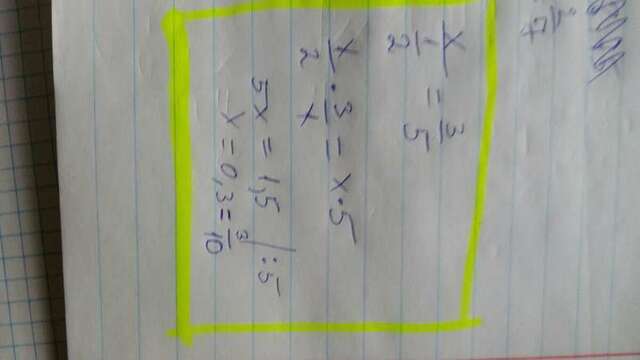 2/7
x/(1/2) = 3/5
x/2 · 3/x = x · 5
5x = 1,5 /:5
x = 0,3 = 3/10